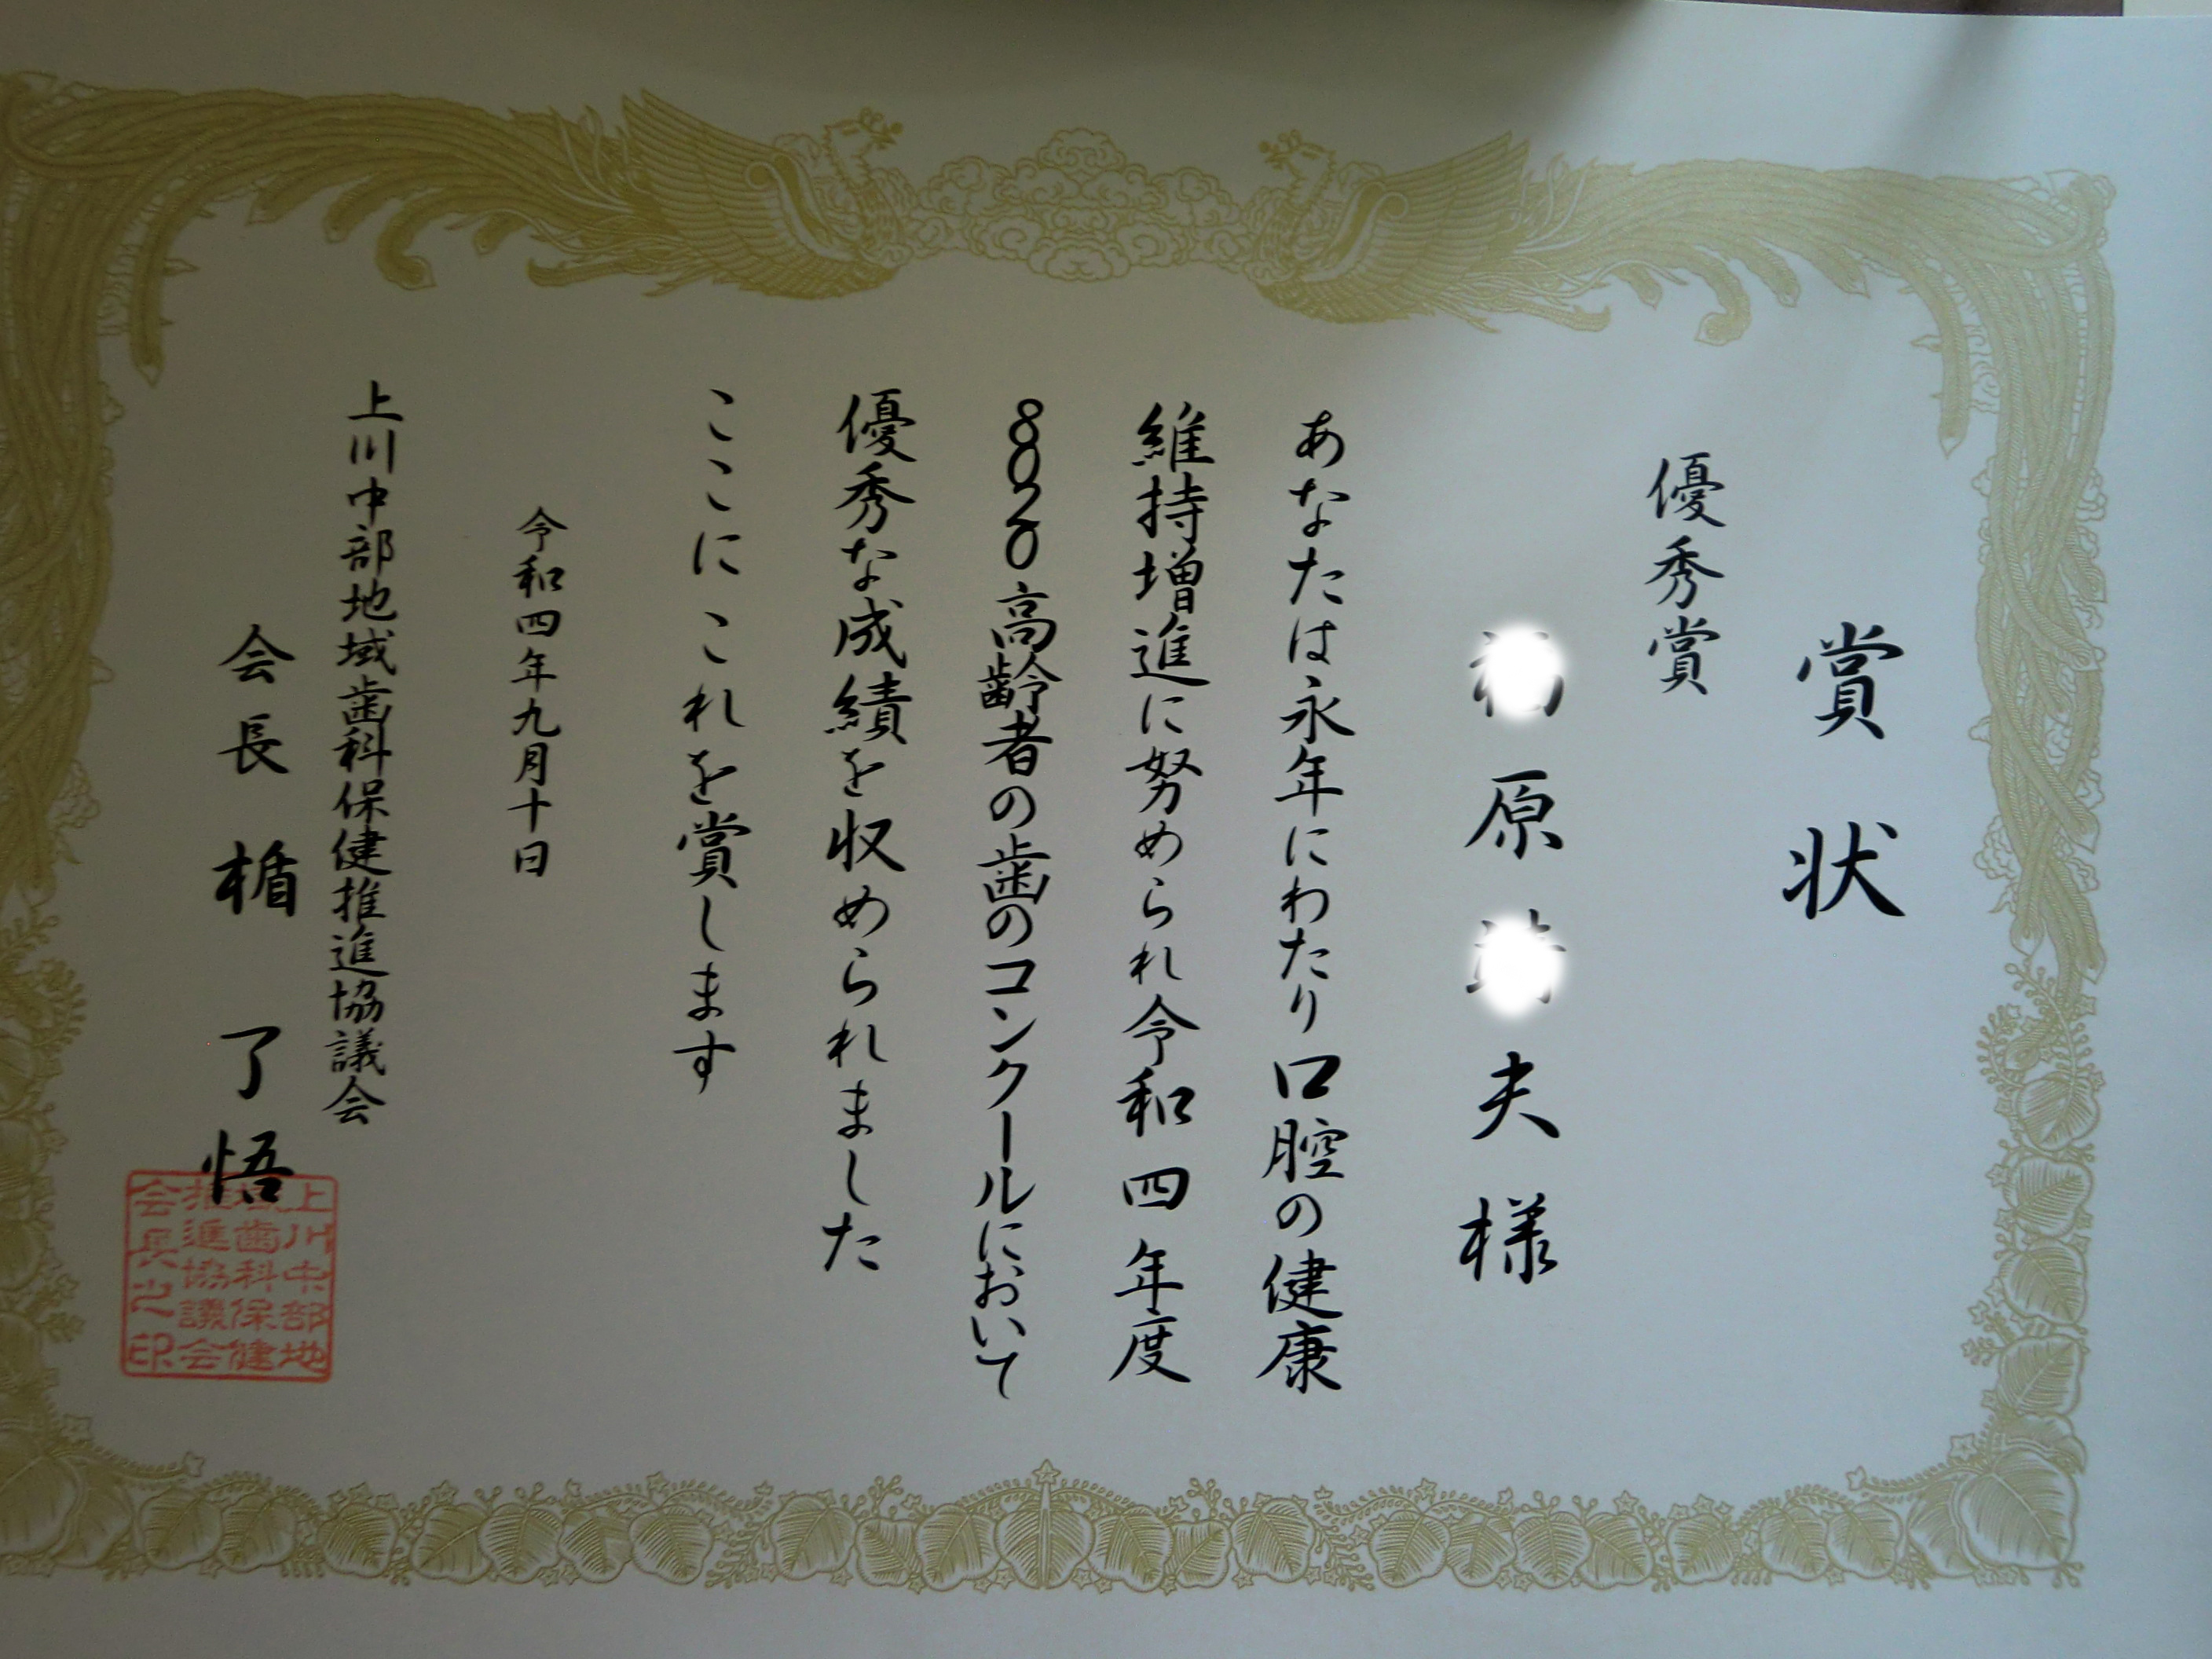 賞状
優秀賞
原 夫 様
あなたは永年にわたり口腔の健康
維持増進に努められ令和四年度
8020高齢者の歯のコンクールにおいて
優秀な成績を収められました
ここにこれを賞します
令和四年九月十日
上川中部地域歯科保健推進協議会
会長 楯 了悟
上川中部地
域歯科保健
推進協議会
会長之印